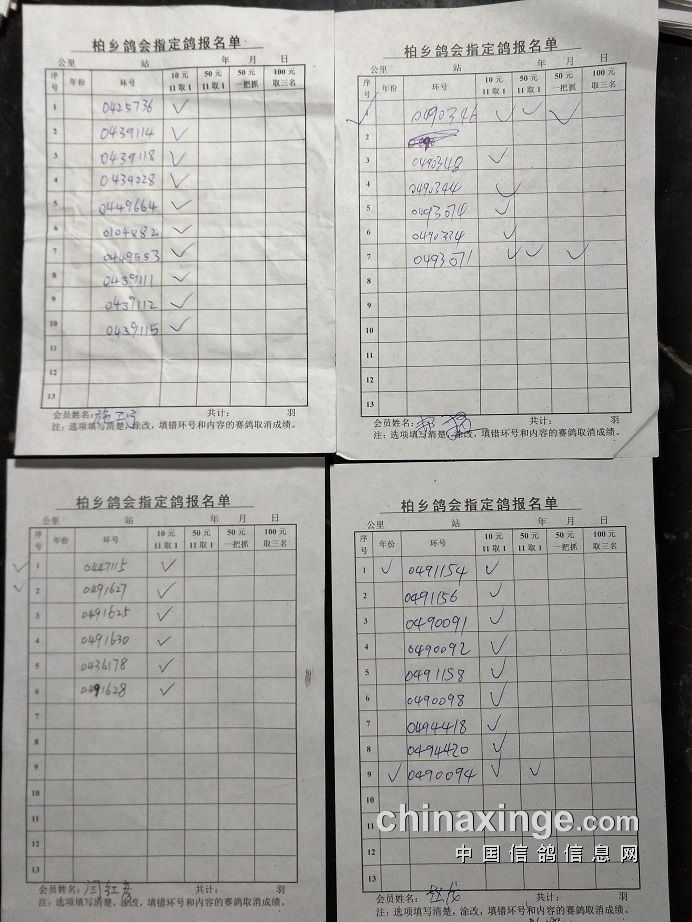 柏乡鸽会指定鸽报名单
公里 站 年 月 日
序号 年份 环号 10元11取1 50元11取1 50元一把抓 100元取三名
1 0425736 ✓
2 0439114 ✓
3 0439118 ✓
4 0439228 ✓
5 0449664 ✓
6 0104882 ✓
7 0449553 ✓
8 0439111 ✓
9 0439112 ✓
10 0439115 ✓
11
12
13
会员姓名: 共计: 羽
注:选项填写清楚,涂改,填错环号和内容的赛鸽取消成绩。
柏乡鸽会指定鸽报名单
公里 站 年 月 日
序号 年份 环号 10元11取1 50元11取1 50元一把抓 100元取三名
1 0490346 ✓ ✓ ✓
2
3 0490348 ✓
4 0490344 ✓
5 0493074 ✓
6 0490334 ✓
7 0493071 ✓ ✓ ✓
8
9
10
11
12
13
会员姓名: 共计: 羽
注:选项填写清楚,涂改,填错环号和内容的赛鸽取消成绩。
柏乡鸽会指定鸽报名单
公里 站 年 月 日
序号 年份 环号 10元11取1 50元11取1 50元一把抓 100元取三名
✓ 1 0447115 ✓
✓ 2 0491627 ✓
3 0491625 ✓
4 0491630 ✓
5 0436178 ✓
6 0491628 ✓
7
8
9
10
11
12
13
会员姓名: 闫红彦 共计: 羽
注:选项填写清楚,涂改,填错环号和内容的赛鸽取消成绩。
柏乡鸽会指定鸽报名单
公里 站 年 月 日
序号 年份 环号 10元11取1 50元11取1 50元一把抓 100元取三名
1 ✓ 0491154 ✓
2 0491156 ✓
3 0490091 ✓
4 0490092 ✓
5 0491158 ✓
6 0490098 ✓
7 0494418 ✓
8 0494420 ✓
9 ✓ 0490094 ✓ ✓
10
11
12
13
会员姓名: 共计: 羽
注:选项填写清楚,涂改,填错环号和内容的赛鸽取消成绩。
chinaxinge.com
中国信鸽信息网